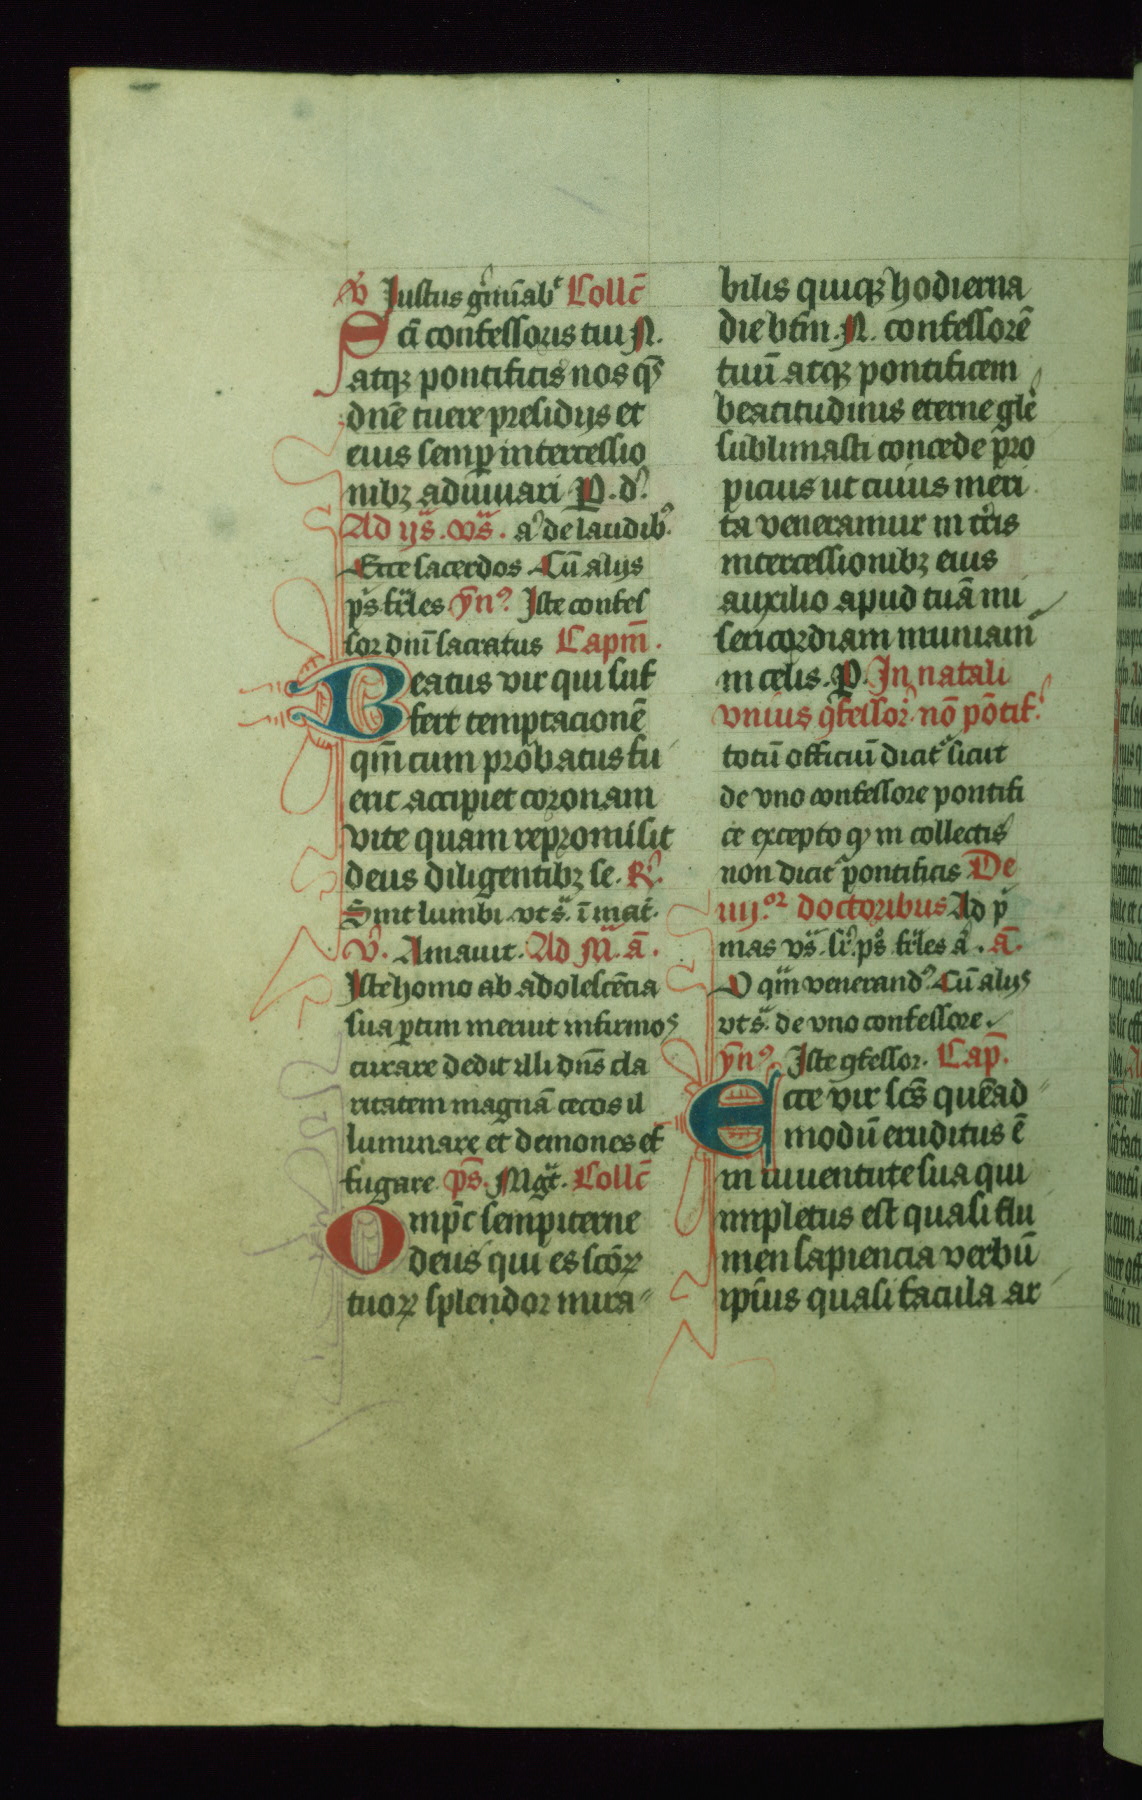 V̉ Justus gͥminabͭ Collc̄
Sc̄i confessoris tui N.
atqꝫ pontificis nos qs̄
dn̄e tuere presidijs et
eius semꝑ intercessio
nibꝫ adiuuari P. d.
Ad ijs. vs. a de laudibꝰ
Ecce sacerdos Cū alijs
ps̄ fr̄les yn̄ꝰ Iste confes
sor dn̄i sacratus Capm̄.
Beatus vir qui suf
fert temptacionē
qm̄ cum probatus fu
erit accipiet coronam
vite quam repromisit
deus diligentibꝫ se. R̉.
Sint lumbi vt sͣ. ī mat̄.
V̉. Amauit. Ad M. ā.
Iste homo ab adolescēcia
sua ꝑtim meruit infirmos
curare dedit illi dn̄s cla
ritatem magnā cecos il
luminare et demones ef
fugare ps̄. Mgͣt. Collc̄
Omp̄c sempiterne
deus qui es scōꝝ
tuoꝝ splendor mira
bilis quiqꝫ hodierna
die btm̄. N. confessorē
tuū atqꝫ pontificem
beatitudinis eterne glē
sublimasti concede pro
picius ut cuius meri
ta veneramur in tr̄is
intercessionibꝫ eius
auxilio apud tuā mi
sericordiam muniam̄
in celis. P. In natali
vnius ꝯfessor̄. nō pōtif.
totū officiū dicatͬ sicut
de vno confessore pontifi
ce excepto ꝙ in collectis
non dicitͬ pontificis De
iiij.or doctoribus Ad p̄
mas vs̄. sr̄. ps̄ fr̄les ā. ā.
O qͣm venerandꝰ. Cū alijs
vt sͣ. de vno confessore.
yn̄ꝰ Iste ꝯfessor. Cap̄.
Ecce vir scs̄ quēad
modū eruditus ē
in iuuentute sua qui
impletus est quasi flu
men sapiencia verbū
ipīus quasi facula ar